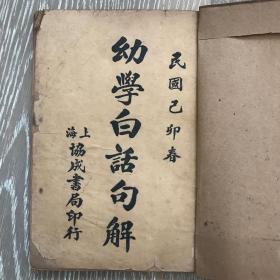 民國己卯春
幼學白話句解
上海
協成書局印行